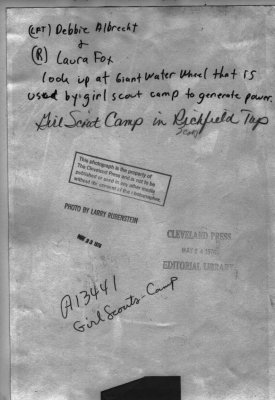 (LFT) Debbie Albrecht
&
(R) Laura Fox
look up at Giant Water Wheel that is
used by girl scout camp to generate power.
Girl Scout Camp in Richfield Twp
This photograph is the property of
The Cleveland Press and is not to be
published or used in any other media
without the consent of the
PHOTO BY LARRY RUBENSTEIN
CLEVELAND PRESS
MAY 24
EDITORIAL LIBRARY
A13441
Girl Scouts-Camp